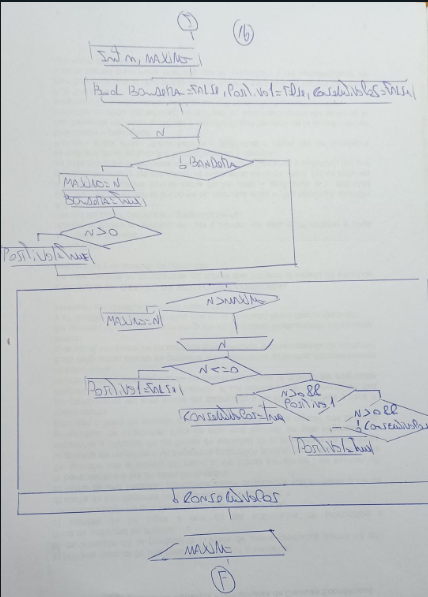 I 16
Int n, MAXIMO
Bool Bandera=False, Positivo1=False, Consecutivos=False
N
!BANDERA
MAXIMO=N
Bandera=True
N>0
Positivo1=True
N>MAXIMO
MAXIMO=N
N
N<=0
Positivo1=False
N>0&&
Positivo1
Consecutivos=True
N>0&&
!Consecutivos
Positivo1=True
!Consecutivos
MAXIMO
F